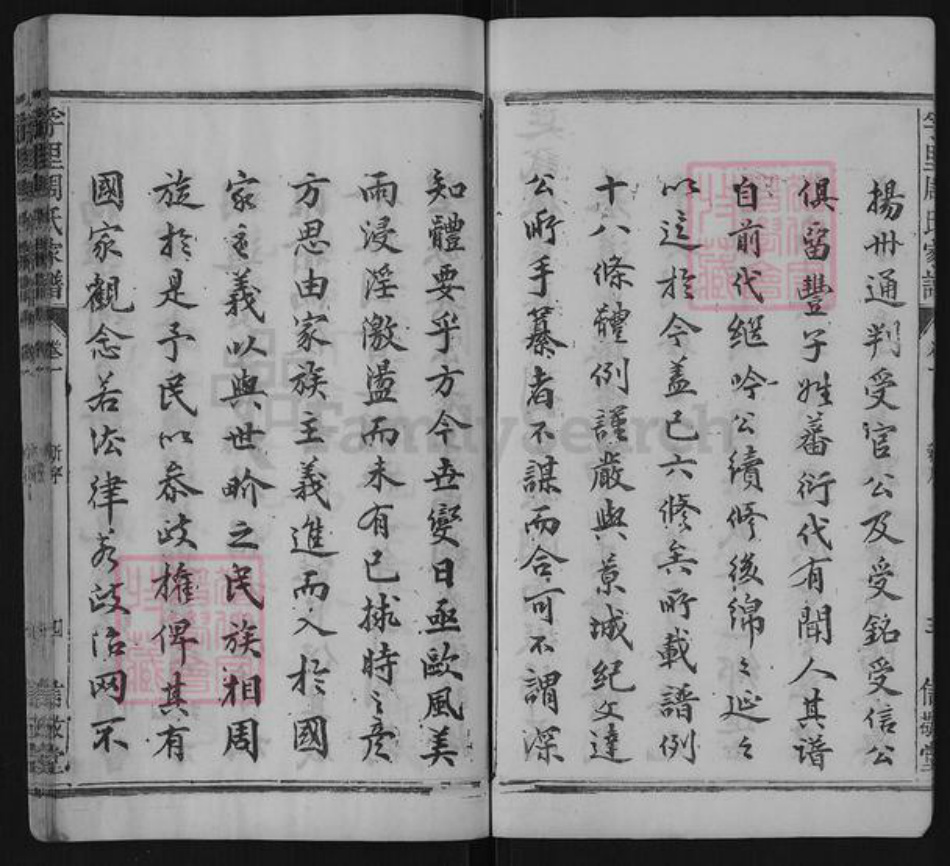 揚州通判受官公及受銘受信公
俱留豐子姓蕃衍代有聞人其譜
自前代继吟公續修後綿々延々
以迄於今蓋已六修矣所載譜例
十八條體例謹嚴與景城紀文達
公所手纂者不謀而合可不謂深
知體要乎方今世變日亟歐風美
雨浸淫激盪而未有已捄時之彦
方思由家族主義進而入於國
家主義以與世界之民族相周
旋於是予民以叅政權俾其有
國家觀念若法律若政治罔不
李里周氏家譜
卷一
新序
四
信敬堂
周氏家譜
三
信敬堂
FamilySearch